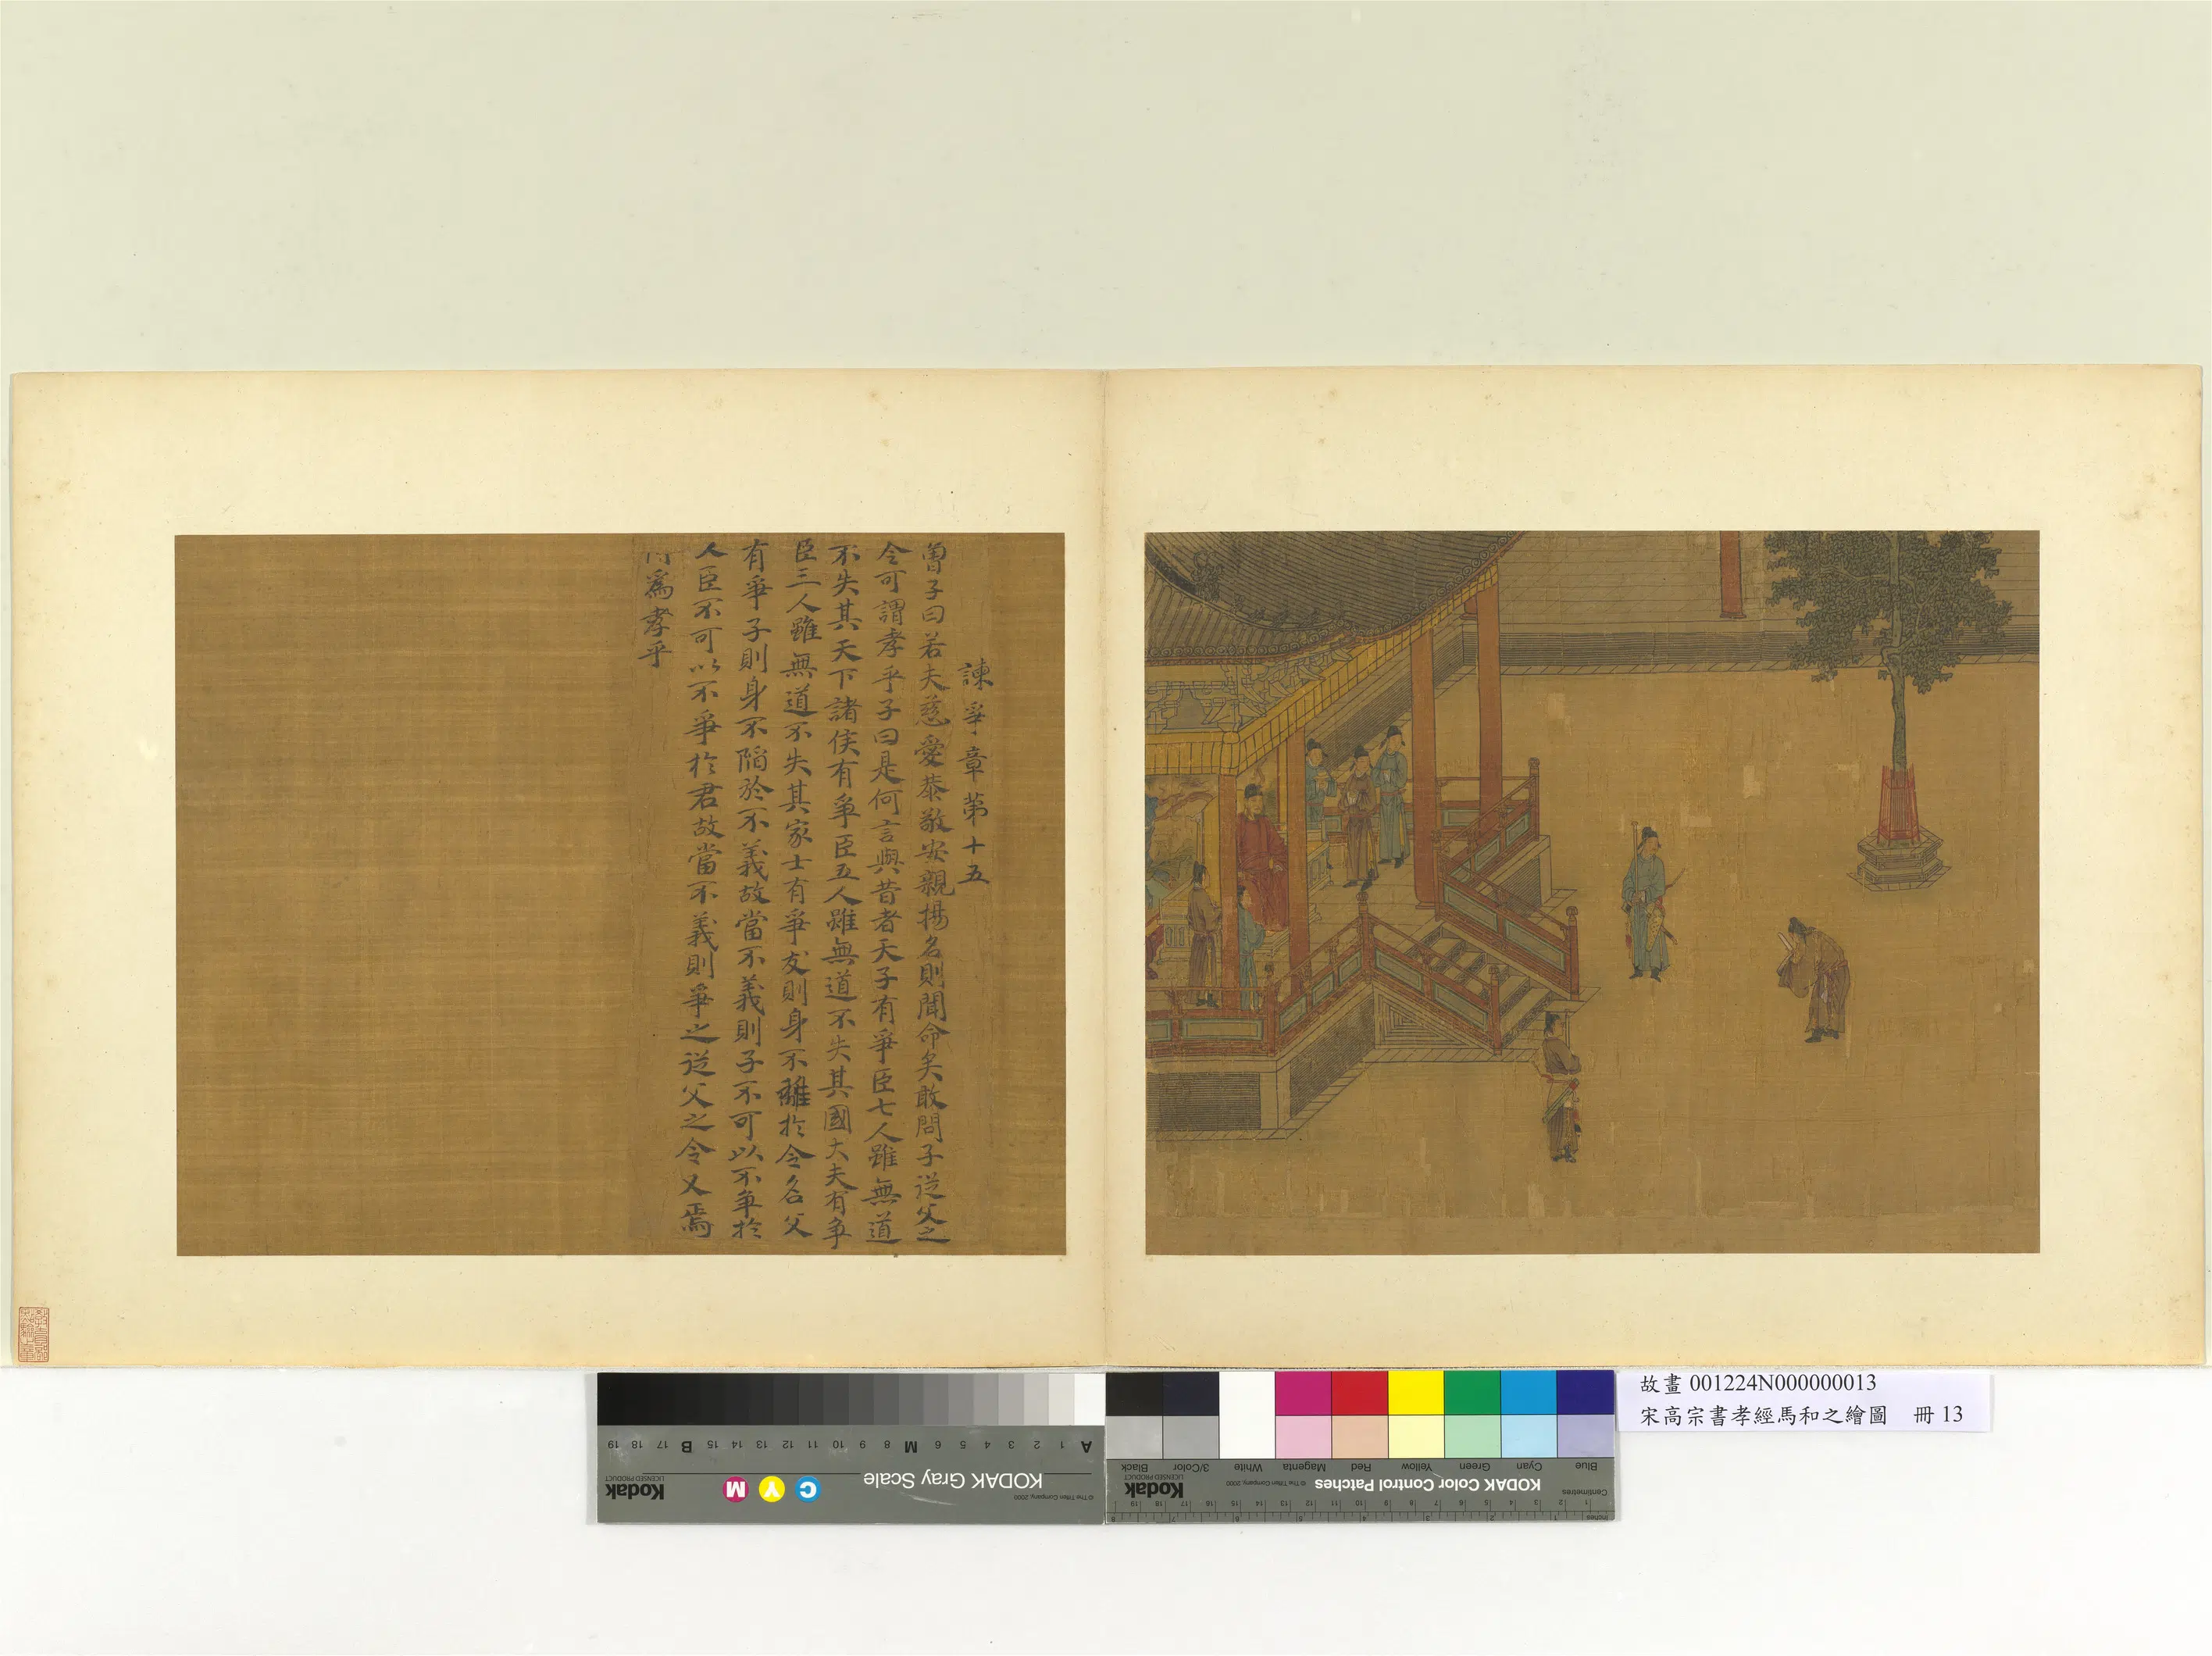 諫爭章第十五
曾子曰若夫慈愛恭敬安親揚名則聞命矣敢問子從父之
令可謂孝乎子曰是何言與昔者天子有爭臣七人雖無道
不失其天下諸侯有爭臣五人雖無道不失其國大夫有爭
臣三人雖無道不失其家士有爭友則身不離於令名父
有爭子則身不陷於不義故當不義則子不可以不爭於
人臣不可以不爭於君故當不義則爭之從父之令又焉
爲孝乎
故畫 001224N000000013
宋高宗書孝經馬和之繪圖 冊 13
Inches 1 2 3 4 5 6 7 8
Centimetres 1 2 3 4 5 6 7 8 9 10 11 12 13 14 15 16 17 18 19
KODAK Color Control Patches © The Tiffen Company, 2000 Kodak LICENSED PRODUCT
Blue Cyan Green Yellow Red Magenta White 3/Color Black
© The Tiffen Company, 2000 KODAK Gray Scale C Y M Kodak LICENSED PRODUCT
A 1 2 3 4 5 6 M 8 9 10 11 12 13 14 15 B 17 18 19